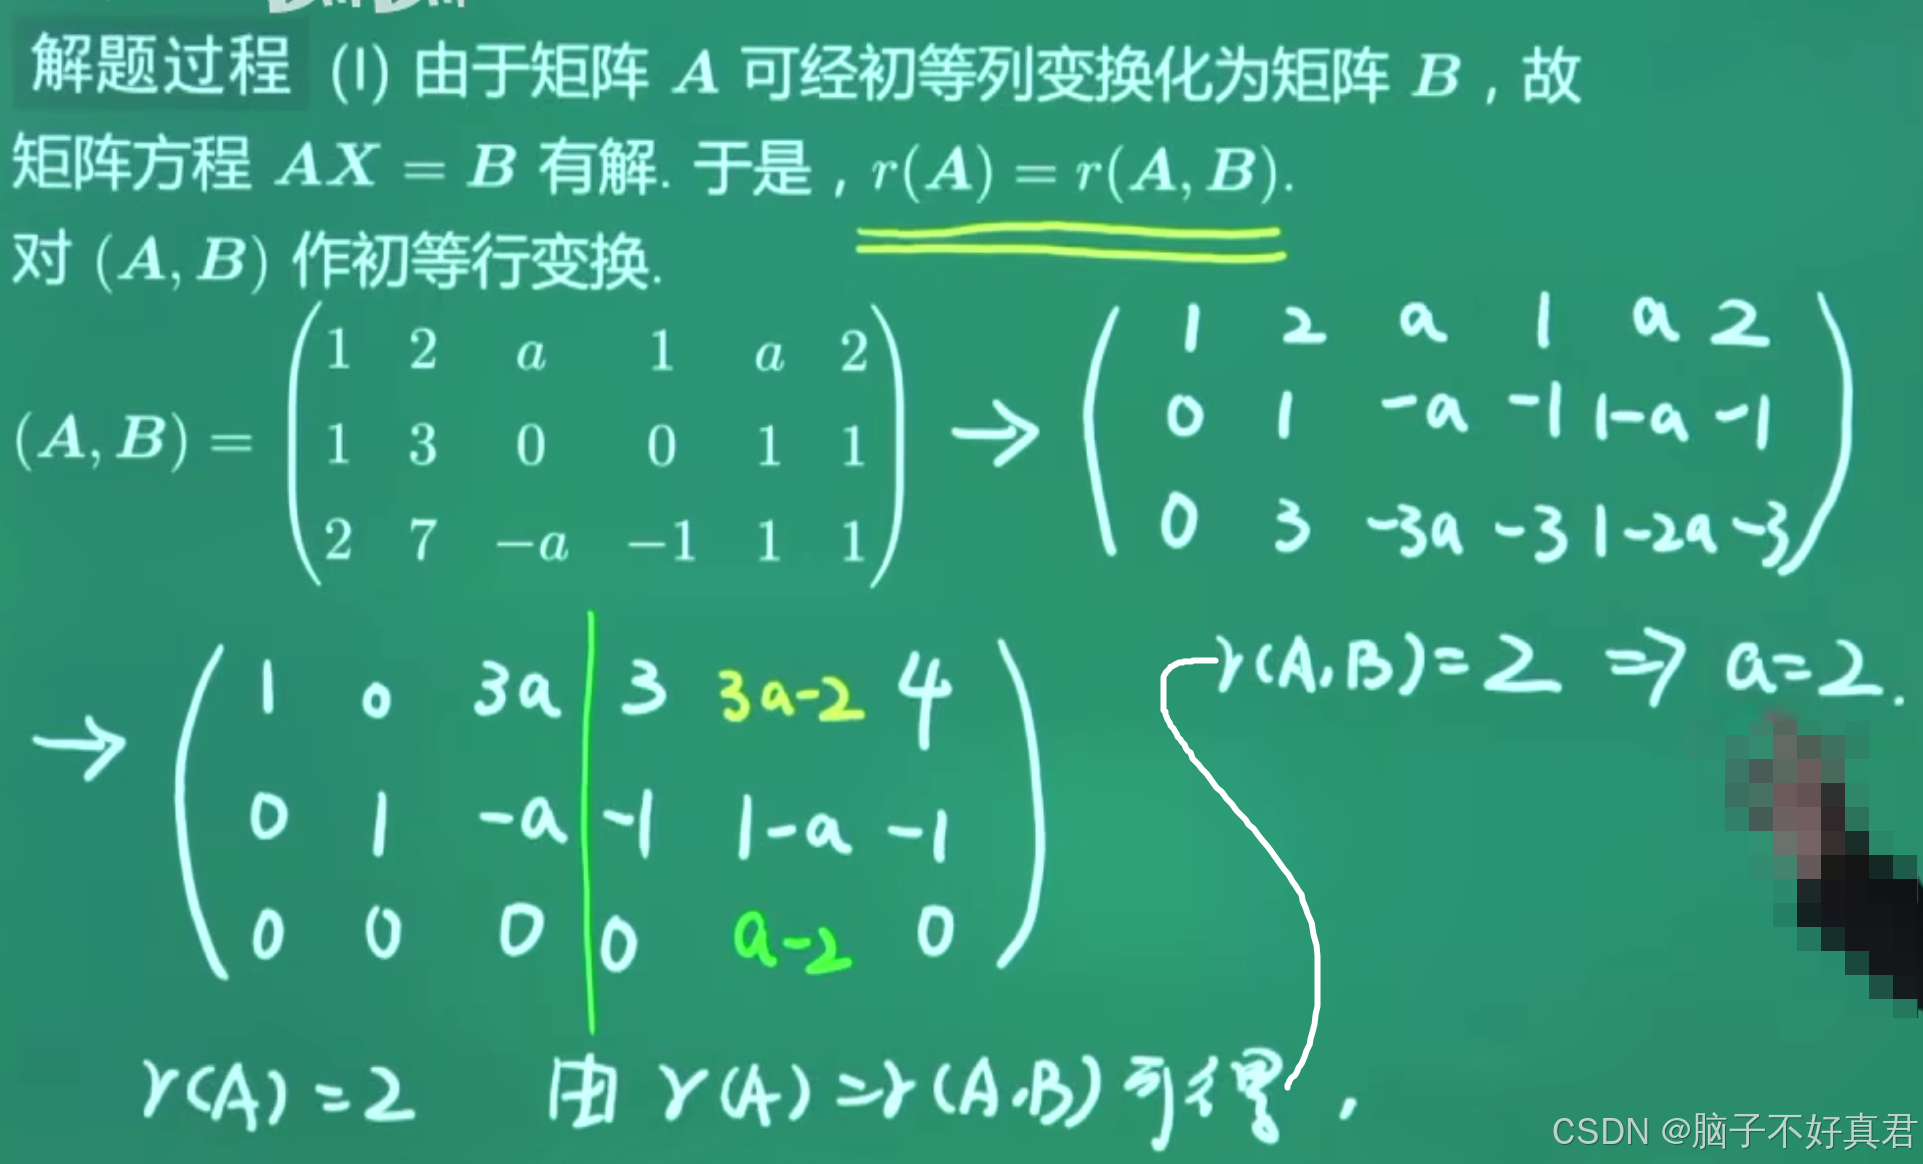 解题过程 (I) 由于矩阵 A 可经初等列变换化为矩阵 B，故
矩阵方程 AX = B 有解. 于是，r(A) = r(A, B).
对 (A, B) 作初等行变换.
(A, B) = ( 1 2 a 1 a 2
1 3 0 0 1 1
2 7 -a -1 1 1 )
→ ( 1 2 a 1 a 2
0 1 -a -1 1-a -1
0 3 -3a -3 1-2a -3 )
→ ( 1 0 3a 3 3a-2 4
0 1 -a -1 1-a -1
0 0 0 0 a-2 0 )
r(A)=2 由 r(A)=r(A,B) 可得,
r(A,B)=2 ⇒ a=2.
CSDN @脑子不好真君